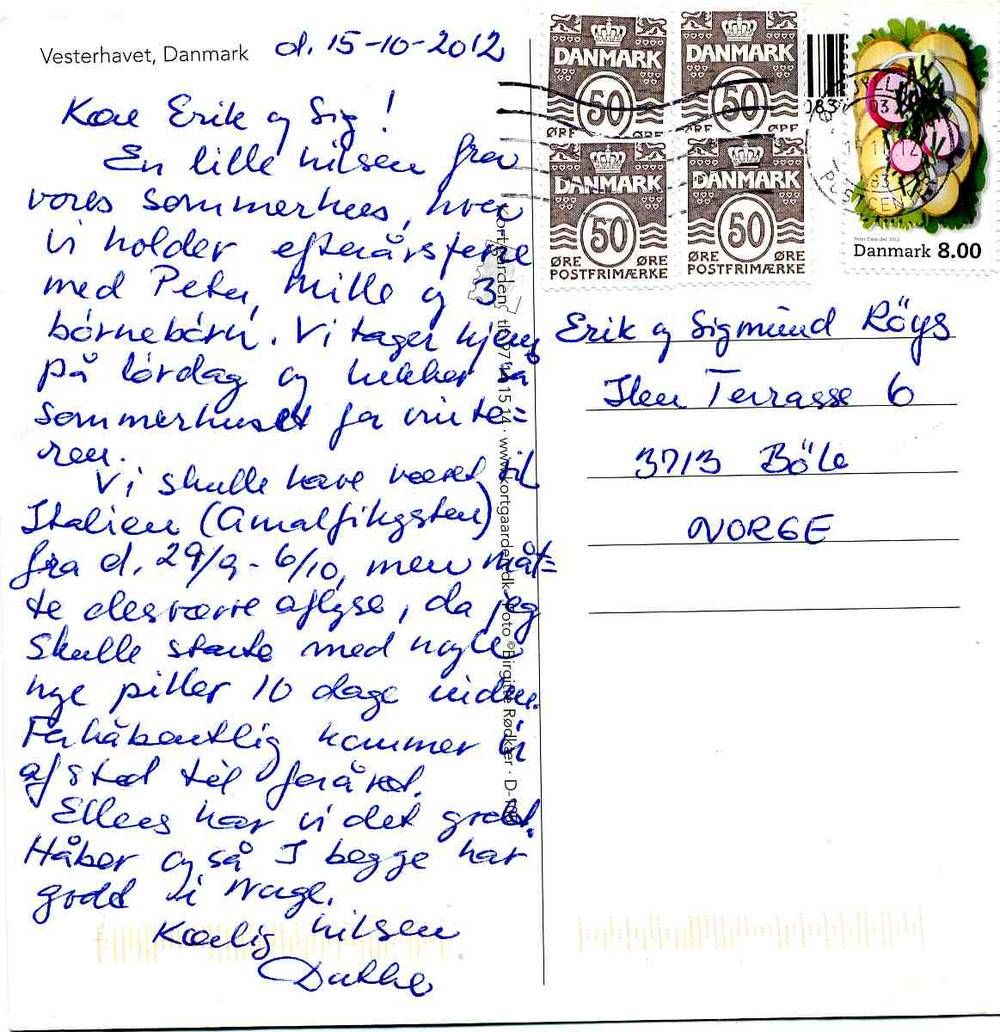 Vesterhavet, Danmark d. 15-10-2012
Kære Erik og Sig!
En lille hilsen fra
vores sommerhus, hvor
vi holder efterårsferie
med Peter, Mille og 3
børnebørn. Vi tager hjem
på lørdag og lukker så
sommerhuset for vinte=
ren.
Vi skulle have været til
Italien (Amalfikysten)
fra d. 29/9 - 6/10, men måt=
te desværre aflyse, da jeg
skulle starte med nogle
nye piller 10 dage inden.
Forhåbentlig kommer vi
afsted til foråret.
Ellers har vi det godt.
Håber også I begge har
godt i Norge.
Kærlig hilsen
DANMARK
50
ØRE
DANMARK
50
ØRE
DANMARK
50
ØRE ØRE
POSTFRIMÆRKE
DANMARK
50
ØRE ØRE
POSTFRIMÆRKE
083
Danmark 8.00
POSTCEN
Erik og Sigmund Röys
Terrasse 6
3713 Böle
NORGE
www.kortgaarden.dk · Foto © Birgitte Rødkær · D-